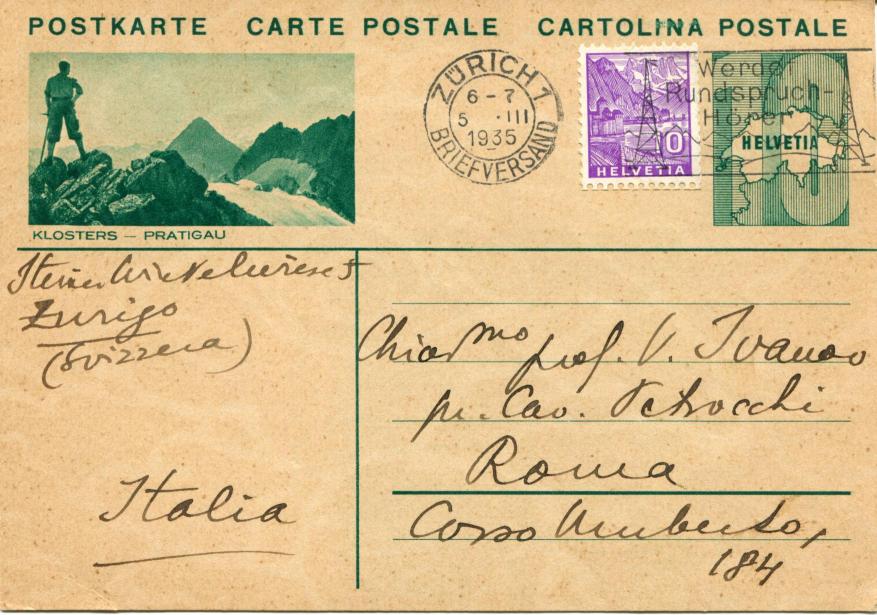 POSTKARTE CARTE POSTALE CARTOLINA POSTALE
KLOSTERS — PRATIGAU
ZÜRICH 1
6-7
5 ·III
1935
BRIEFVERSAND
Werdet
Rundspruch-
Hörer
10
HELVETIA
HELVETIA
5
Zurigo
(Svizzera)
Italia
Chiar.mo prof. V. Ivanov
pr. Cav. Petrocchi
Roma
Corso Umberto,
184